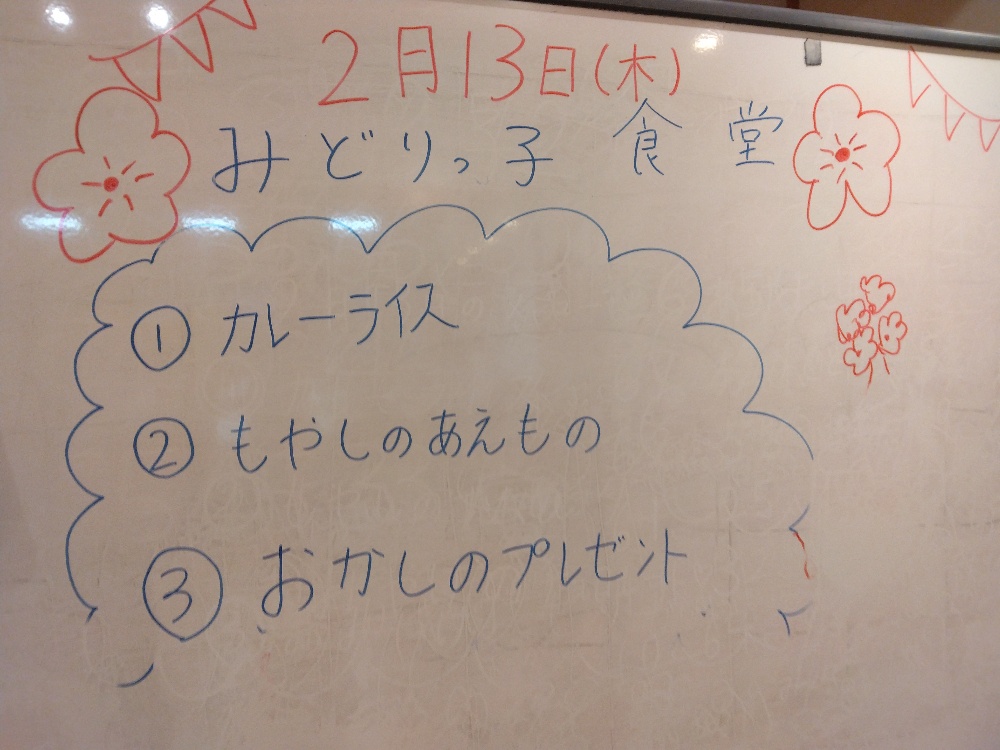 2月13日(木)
みどりっ子食堂
① カレーライス
② もやしのあえもの
③ おかしのプレゼント